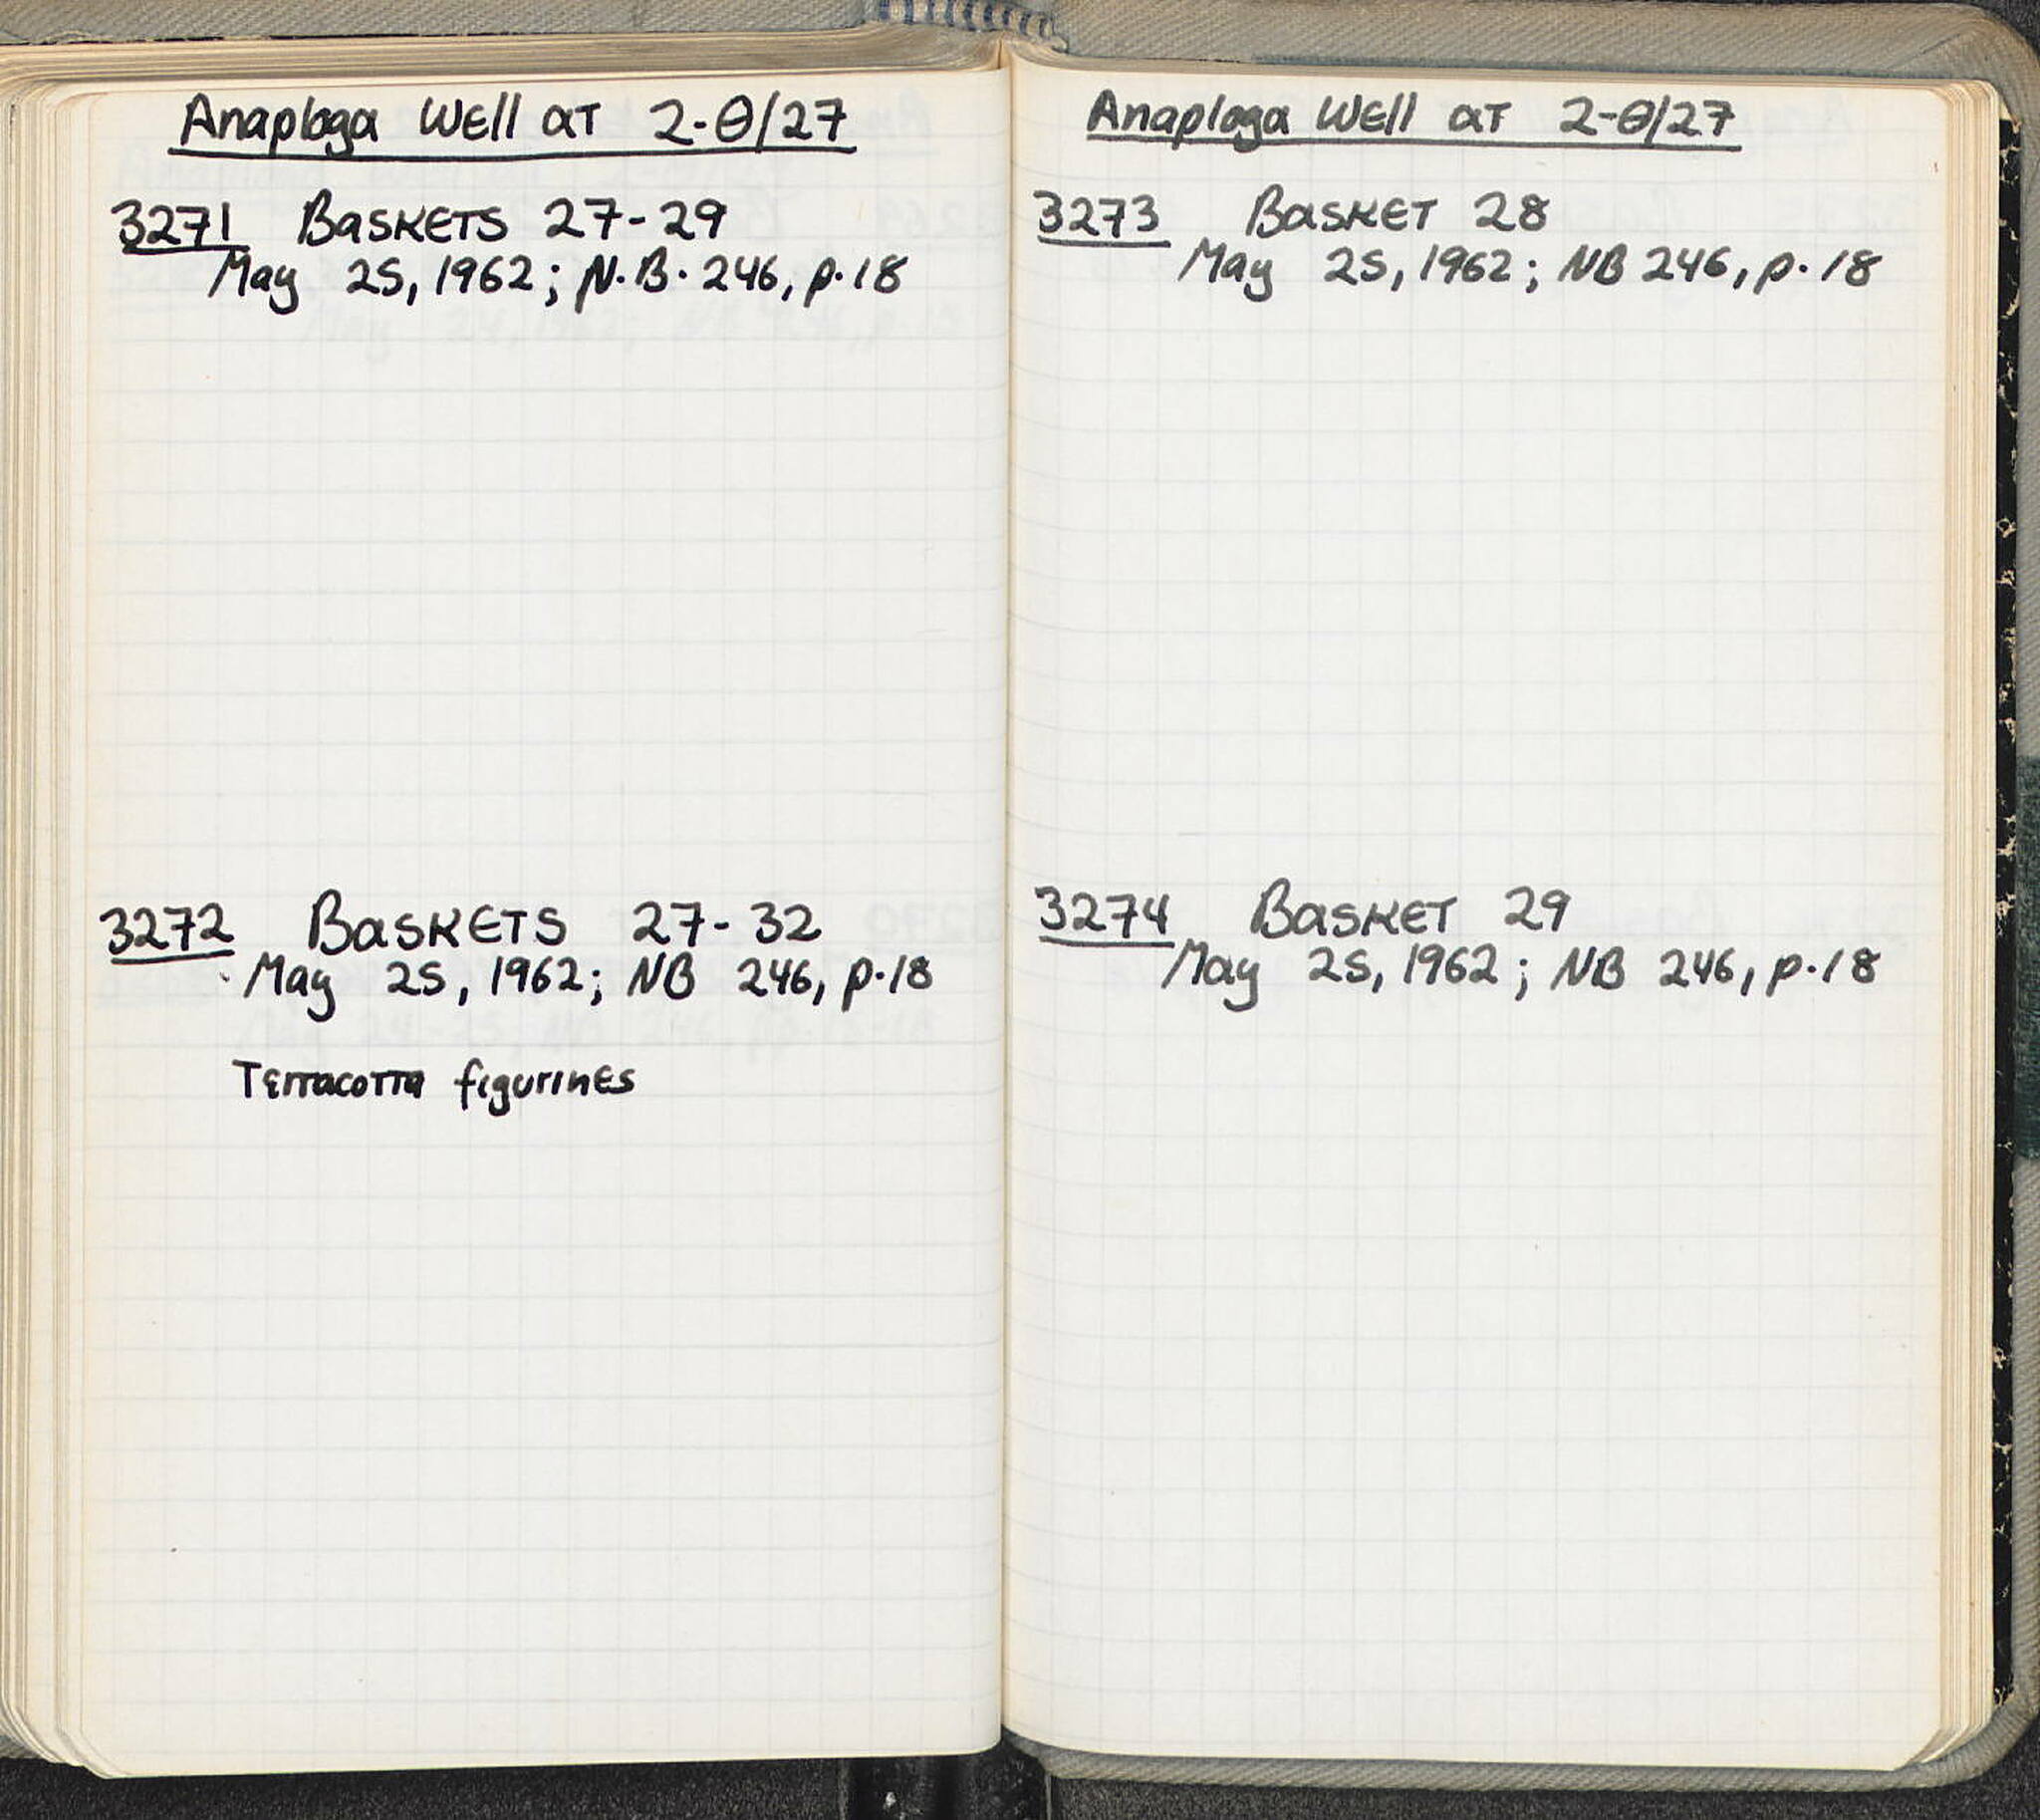 Anaploga Well at 2-Θ/27
3271 Baskets 27-29
May 25, 1962; N.B. 246, p.18
3272 Baskets 27-32
May 25, 1962; NB 246, p.18
Terracotta figurines
Anaploga Well at 2-Θ/27
3273 Basket 28
May 25, 1962; NB 246, p.18
3274 Basket 29
May 25, 1962; NB 246, p.18